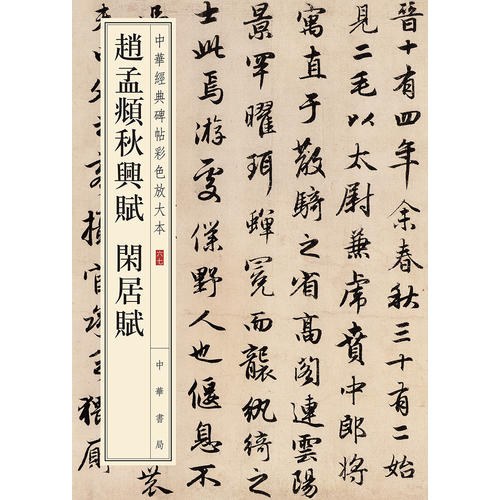 晉十有四年余春秋三十有二始
見二毛以太尉兼虎賁中郎將
寓直于散騎之省高閣連雲陽
景罕曜珥蟬冕而襲紈綺之
士此焉游處僕野人也偃息不
中華經典碑帖彩色放大本 六七
中華書局
趙孟頫秋興賦 閑居賦
攝官承乏猥厠